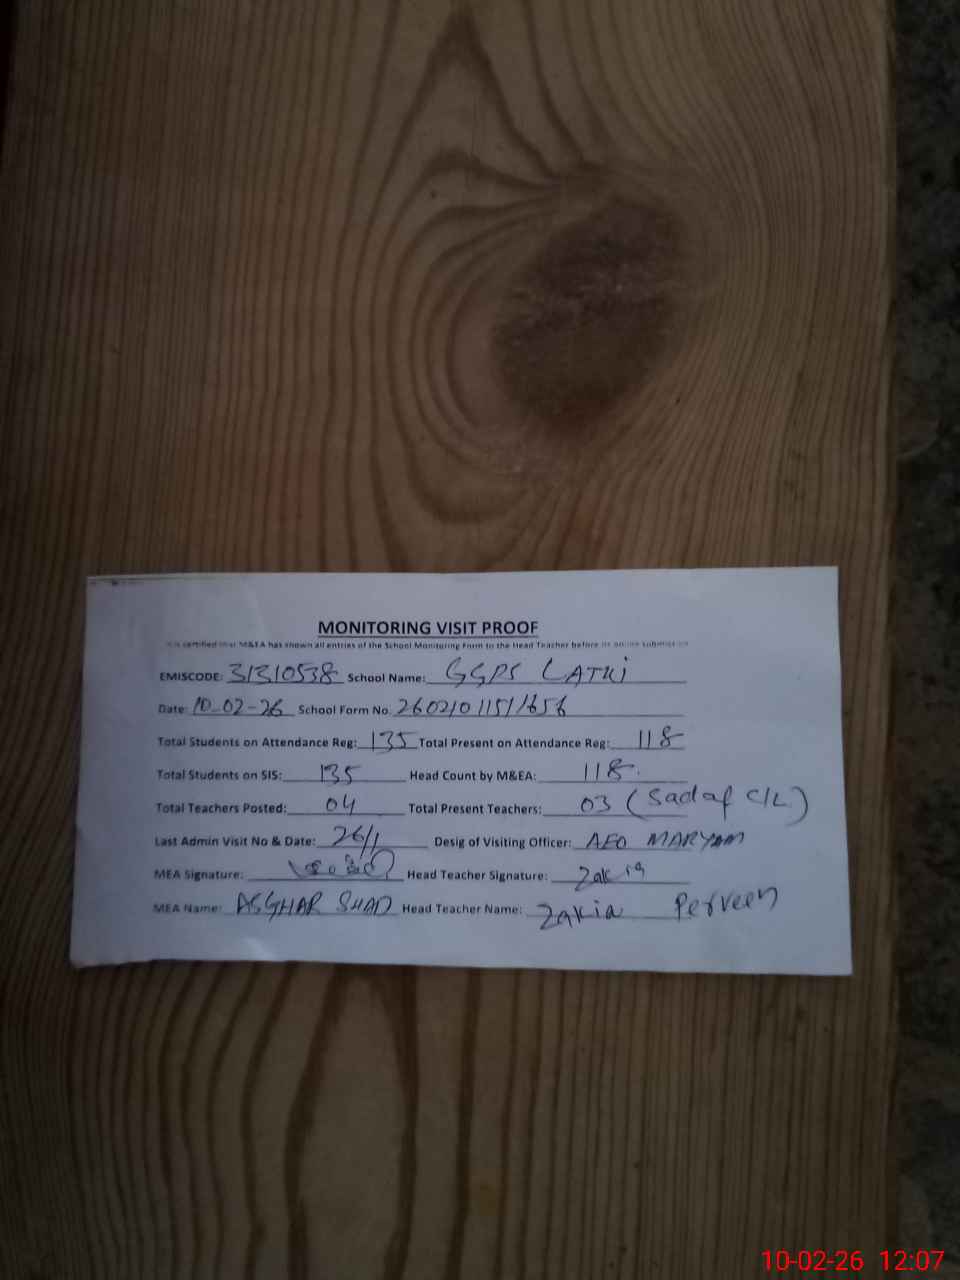 MONITORING VISIT PROOF
It is certified that M&EA has shown all entries of the School Monitoring Form to the Head Teacher before its online submission
EMISCODE: 31310538 School Name: GGPS LATKI
Date: 10-02-26 School Form No. 26021011511656
Total Students on Attendance Reg: 135 Total Present on Attendance Reg: 118
Total Students on SIS: 135 Head Count by M&EA: 118
Total Teachers Posted: 04 Total Present Teachers: 03 (Sadaf C/L)
Last Admin Visit No & Date: 26/1 Desig of Visiting Officer: AEO MARYAM
MEA Signature: Head Teacher Signature: Zakia
MEA Name: ASGHAR SHAD Head Teacher Name: Zakia Perveen
10-02-26 12:07